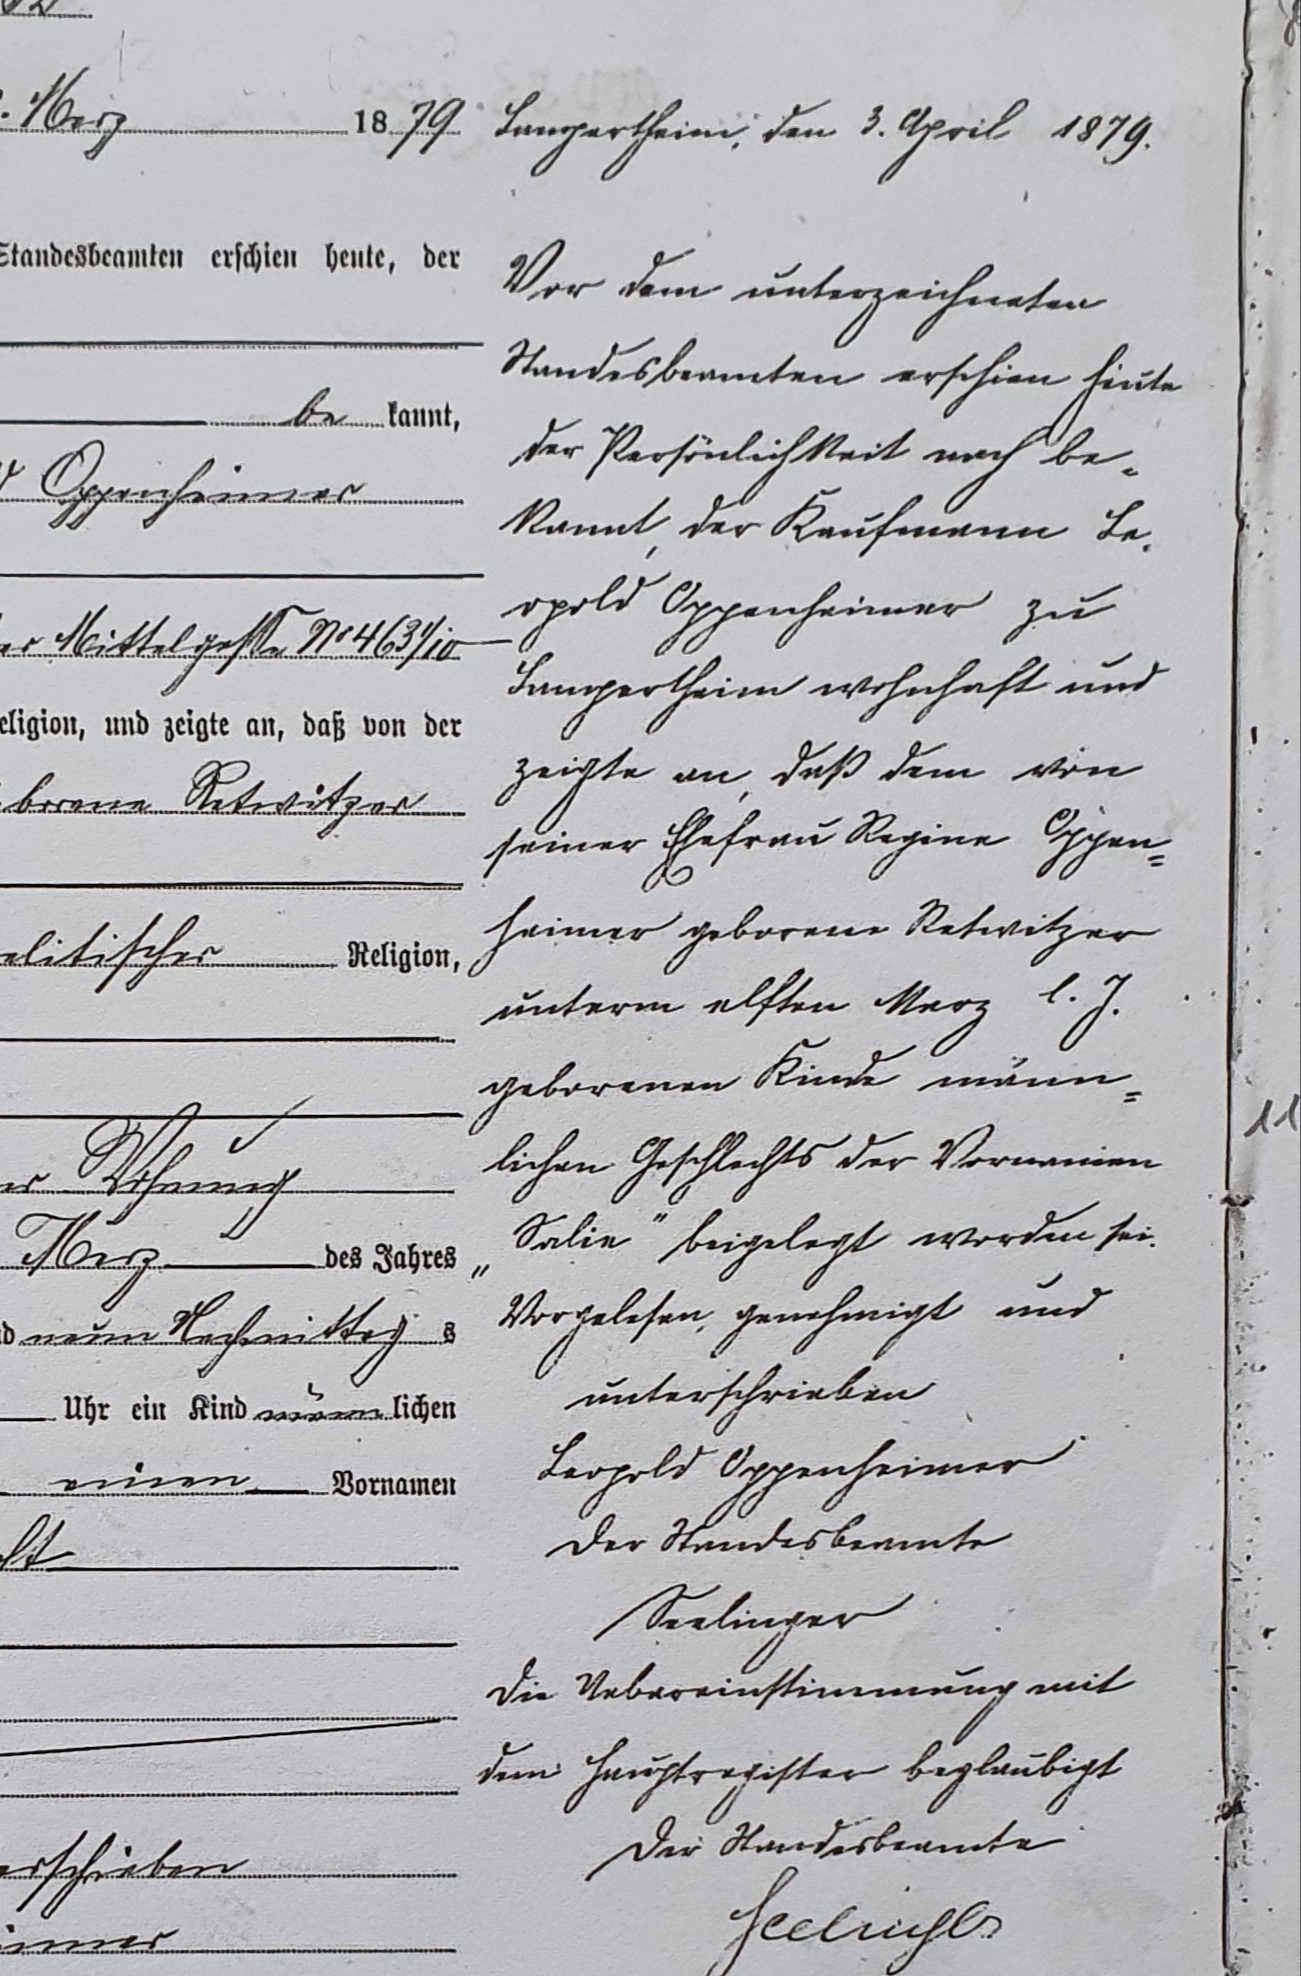 Merz 1879
Standesbeamten erschien heute, der
be kannt,
Oppenheimer
Mittelgasse No 463 1/10
Religion, und zeigte an, daß von der
borene Retwitzer
elitischer Religion,
Wohnung
Merz des Jahres
neun Nachmittag s
Uhr ein Kind männ lichen
einen Vornamen
erschrieben
Lampertheim, den 3. April 1879.
Vor dem unterzeichneten
Standesbeamten erschien heute
der Persönlichkeit nach be-
kannt, der Kaufmann Le-
opold Oppenheimer zu
Lampertheim wohnhaft und
zeigte an, daß dem von
seiner Ehefrau Regine Oppen=
heimer geborene Retwitzer
unterm elften Merz l. J.
geborenen Kinde männ=
lichen Geschlechts der Vornamen
„Salie" beigelegt worden sei.
Vorgelesen, genehmigt und
unterschrieben
Leopold Oppenheimer
Der Standesbeamte
Seelinger
Die Uebereinstimmung mit
dem Hauptregister beglaubigt
Der Standesbeamte
Seelinger
11